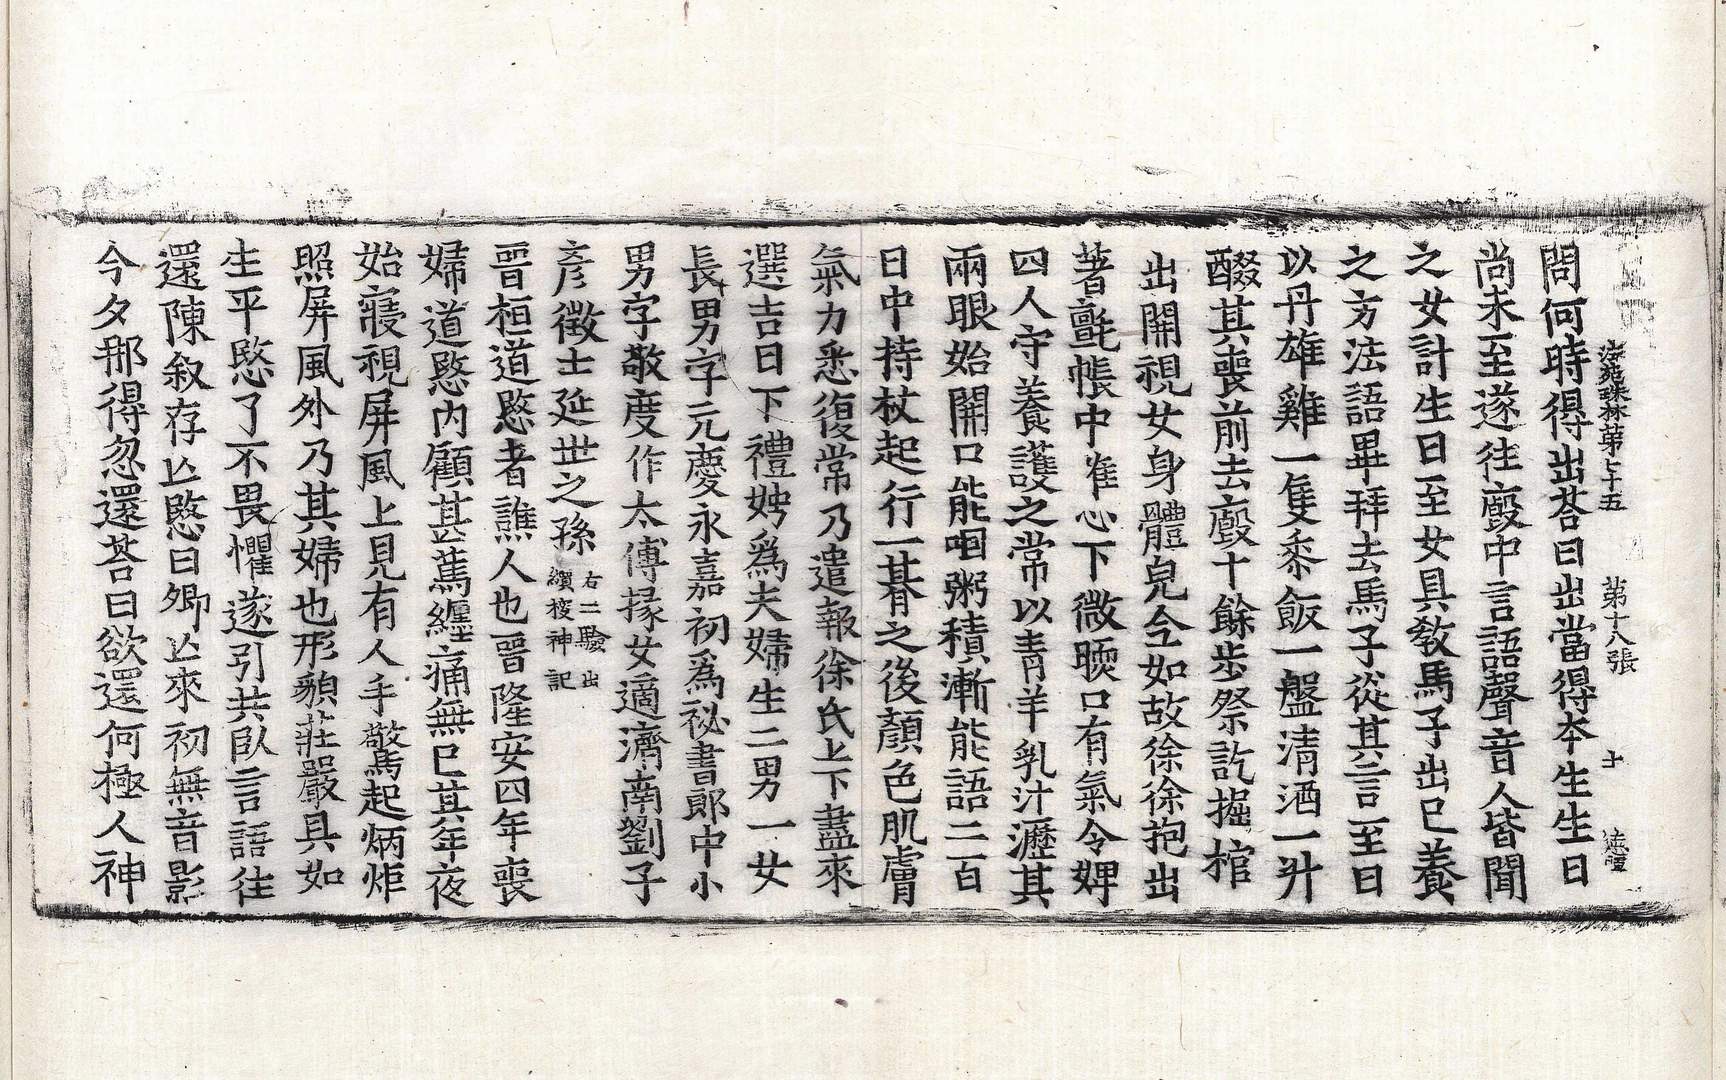 法苑珠林第七十五 第十八張 土
問何時得出荅曰出當得夲生生日
尚未至遂往廄中言語聲音人皆聞
之女計生日至女具教馬子出巳養
之方法語畢拜去馬子從其言至日
以丹雄雞一隻黍飯一盤清酒一升
醊其喪前去廄十餘步祭訖掘棺
出開視女身體皃全如故徐徐抱出
著氈帳中唯心下微暖口有氣令婢
四人守養護之常以青羊乳汁瀝其
兩眼始開口能咽粥積漸能語二百
日中持杖起行一朞之後顏色肌膚
氣力悉復常乃遣報徐氏上下盡來
選吉日下禮娉爲夫婦生二男一女
長男字元慶永嘉初爲祕書郎中小
男字敬度作太傅掾女適濟南劉子
彥徵士延世之孫 右二驗出續搜神記
晉桓道愍者譙人也晉隆安四年喪
婦道愍内顧甚篤纏痛無巳其年夜
始寢視屏風上見有人手驚起炳炬
照屏風外乃其婦也形貌莊嚴具如
生平愍了不畏懼遂引共臥言語往
還陳叙存亾愍曰卿亾來初無音影
今夕那得忽還荅曰欲還何極人神